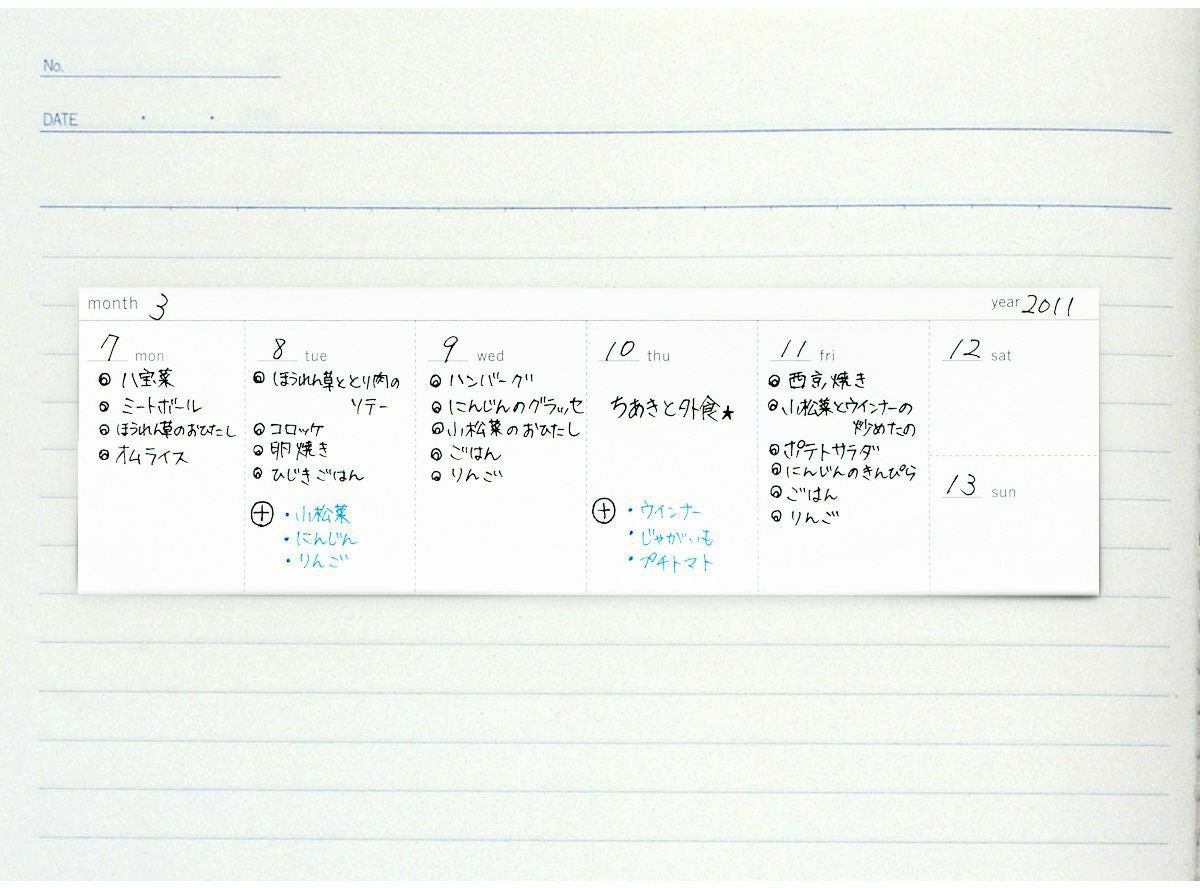 No.
DATE ・ ・
month 3 year 2011
7 mon
◎ 八宝菜
◎ ミートボール
◎ ほうれん草のおひたし
◎ オムライス
8 tue
◎ ほうれん草ととり肉の
ソテー
◎ コロッケ
◎ 卵焼き
◎ ひじきごはん
⊕ ・小松菜
・にんじん
・りんご
9 wed
◎ ハンバーグ
◎ にんじんのグラッセ
◎ 小松菜のおひたし
◎ ごはん
◎ りんご
10 thu
ちあきと外食★
⊕ ・ウインナー
・じゃがいも
・プチトマト
11 fri
◎ 西京焼き
◎ 小松菜とウインナーの
炒めたの
◎ ポテトサラダ
◎ にんじんのきんぴら
◎ ごはん
◎ りんご
12 sat
13 sun